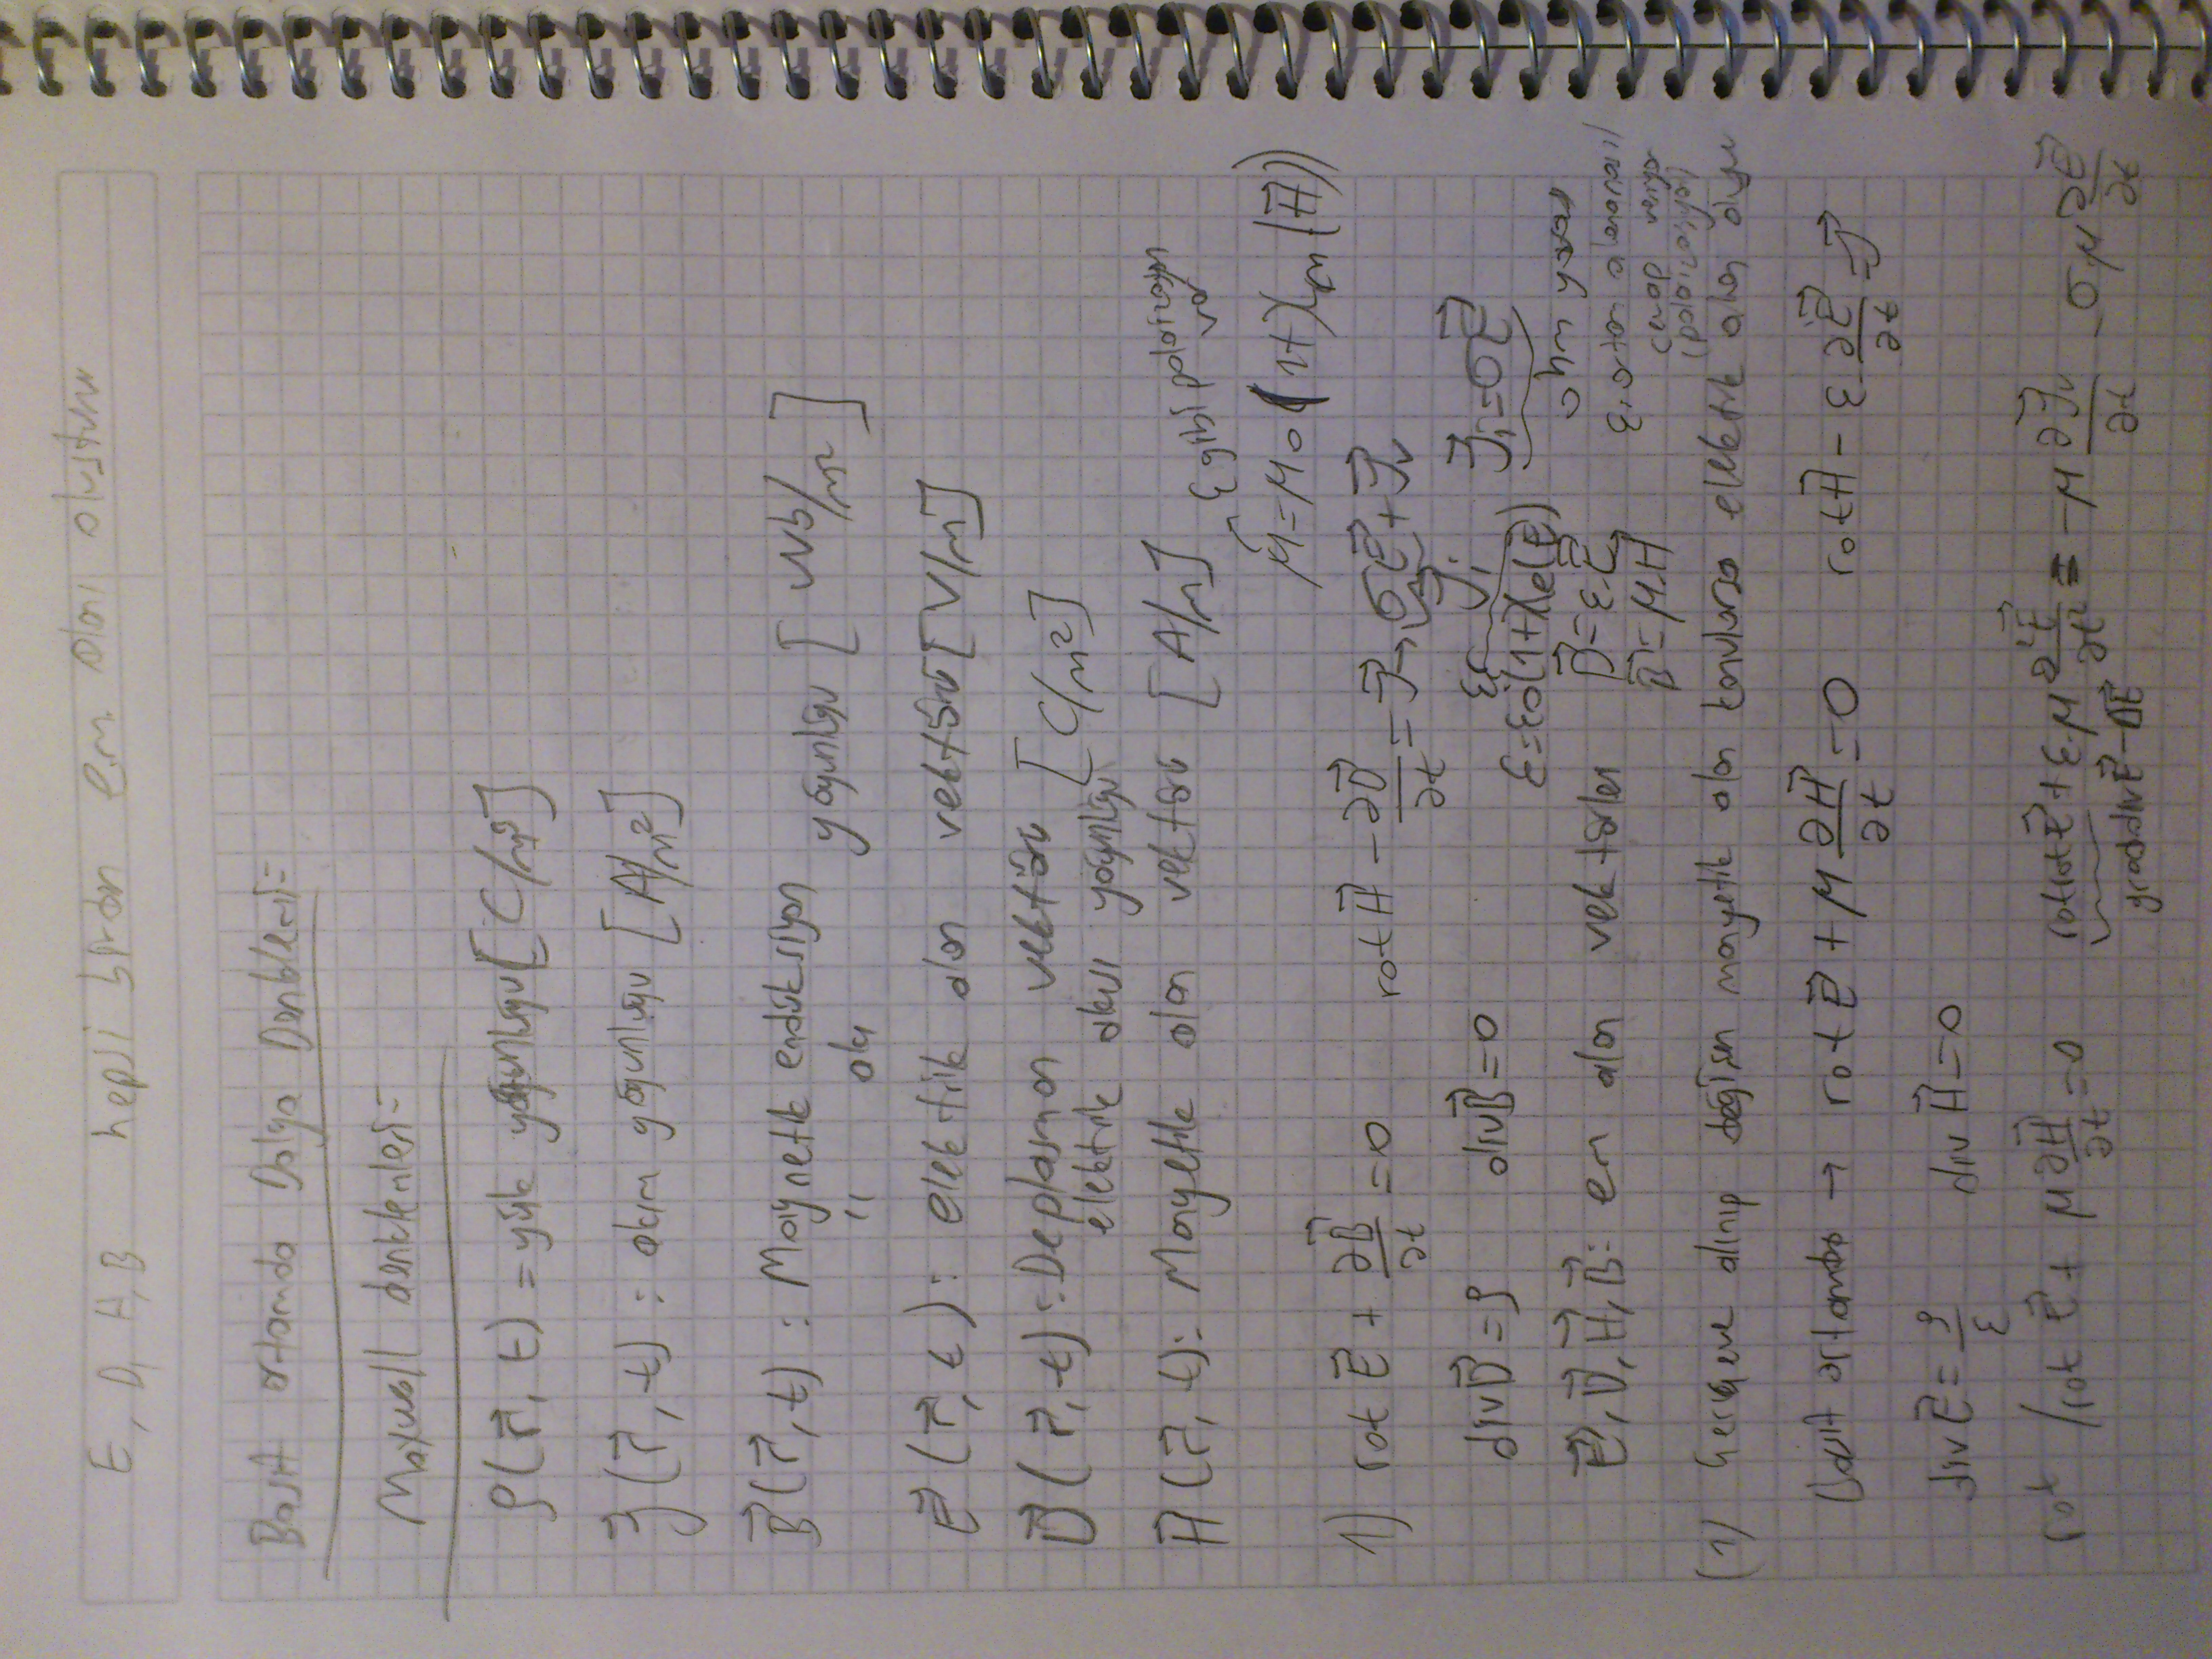 E, D, H, B hepsi birden e.m. alanı oluşturur
Basit ortamda Dalga Denklemi=
Maxwell denklemleri=
ρ(r⃗, t) = yük yoğunluğu [C/m³]
J⃗(r⃗, t) : akım yoğunluğu [A/m²]
B⃗(r⃗, t) : Magnetik endüksiyon yoğunluğu [Wb/m²]
" akı
E⃗(r⃗, t) : elektrik alan vektörü [V/m]
D⃗(r⃗, t) : Deplasman vektörü [C/m²]
elektrik akısı yoğunluğu
H⃗(r⃗, t) : Manyetik alan vektörü [A/m]
ε gibi polarizasyon
var
μ = μ₀(1+χm(H⃗))
1) rot E⃗ + ∂B⃗/∂t = 0 rot H⃗ - ∂D⃗/∂t = J⃗ → σE⃗ + J⃗v
J⃗i
div D⃗ = ρ div B⃗ = 0 J⃗i = σE⃗
ε = ε₀(1+χe(E⃗))
E⃗, D⃗, H⃗, B⃗: em alan vektörleri D⃗ = ε.E⃗
B⃗ = μ.H⃗
(1) Çerçeve alınıp değişen manyetik alan konulursa elektrik alan oluşur
Basit ortamda → rot E⃗ + μ ∂H⃗/∂t = 0 rot H⃗ - ε ∂E⃗/∂t = J⃗
div E⃗ = ρ/ε div H⃗ = 0
rot / rot E⃗ + μ ∂H⃗/∂t = 0 rotrot E⃗ + ε.μ ∂²E⃗/∂t² = -μ ∂J⃗v/∂t - σ.μ ∂E⃗/∂t
graddivE⃗ - ΔE⃗